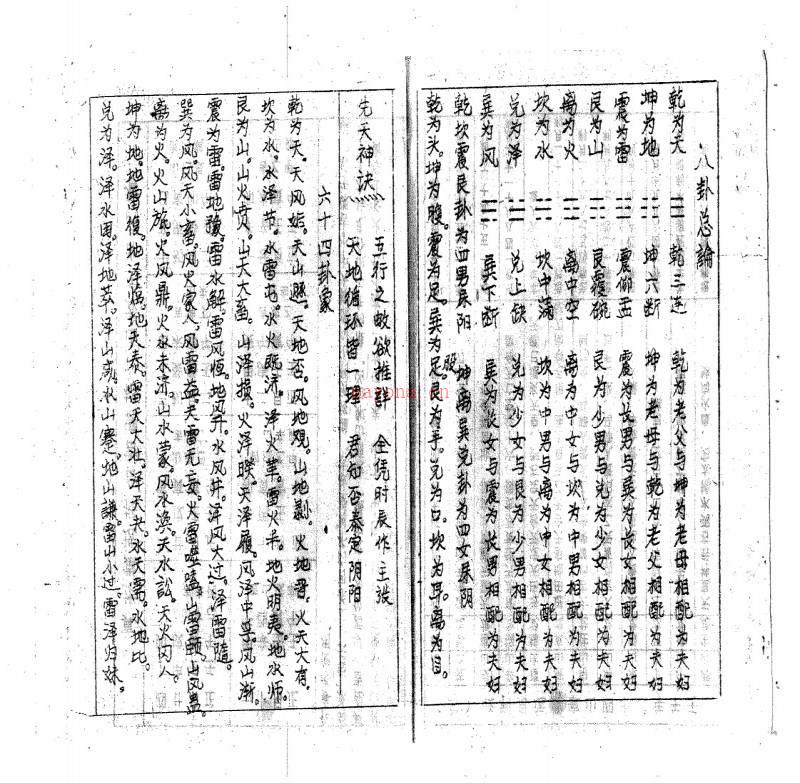 八卦总論
乾为天 ☰ 乾三连 乾为老父与坤为老母相配为夫妇
坤为地 ☷ 坤六断 坤为老母与乾为老父相配为夫妇
震为雷 ☳ 震仰盂 震为长男与巽为长女相配为夫妇
艮为山 ☶ 艮覆碗 艮为少男与兑为少女相配为夫妇
离为火 ☲ 离中空 离为中女与坎为中男相配为夫妇
坎为水 ☵ 坎中满 坎为中男与离为中女相配为夫妇
兑为泽 ☱ 兑上缺 兑为少女与艮为少男相配为夫妇
巽为风 ☴ 巽下断 巽为长女与震为长男相配为夫妇
乾坎震艮卦为四男属阳 坤离巽兑卦为四女属阴
乾为头。坤为腹。震为足。巽为股。艮为手。兑为口。坎为耳。离为目。
先天神诀
五行之 欲推詳 全凭时辰作主張
天地循环皆一理 君 否泰定阴阳
六十四卦象
乾为天。天风姤。天山遯。天地否。风地观。山地剥。火地晋。火天大有。
坎为水。水泽节。水雷屯。水火既济。泽火革。雷火丰。地火明夷。地水师。
艮为山。山火贲。山天大畜。山泽損。火泽睽。天泽履。风泽中孚。风山渐。
震为雷。雷地豫。雷水解。雷风恒。地风升。水风井。泽风大过。泽雷隨。
巽为风。风天小畜。风火家人。风雷益。天雷无妄。火雷噬嗑。山雷頤。山风蛊。
离为火。火山旅。火风鼎。火水未济。山水蒙。风水涣。天水訟。天火同人。
坤为地。地雷復。地泽临。地天泰。雷天大壮。泽天夬。水天需。水地比。
兑为泽。泽水困。泽地萃。泽山咸。水山蹇。地山謙。雷山小过。雷泽归妹。